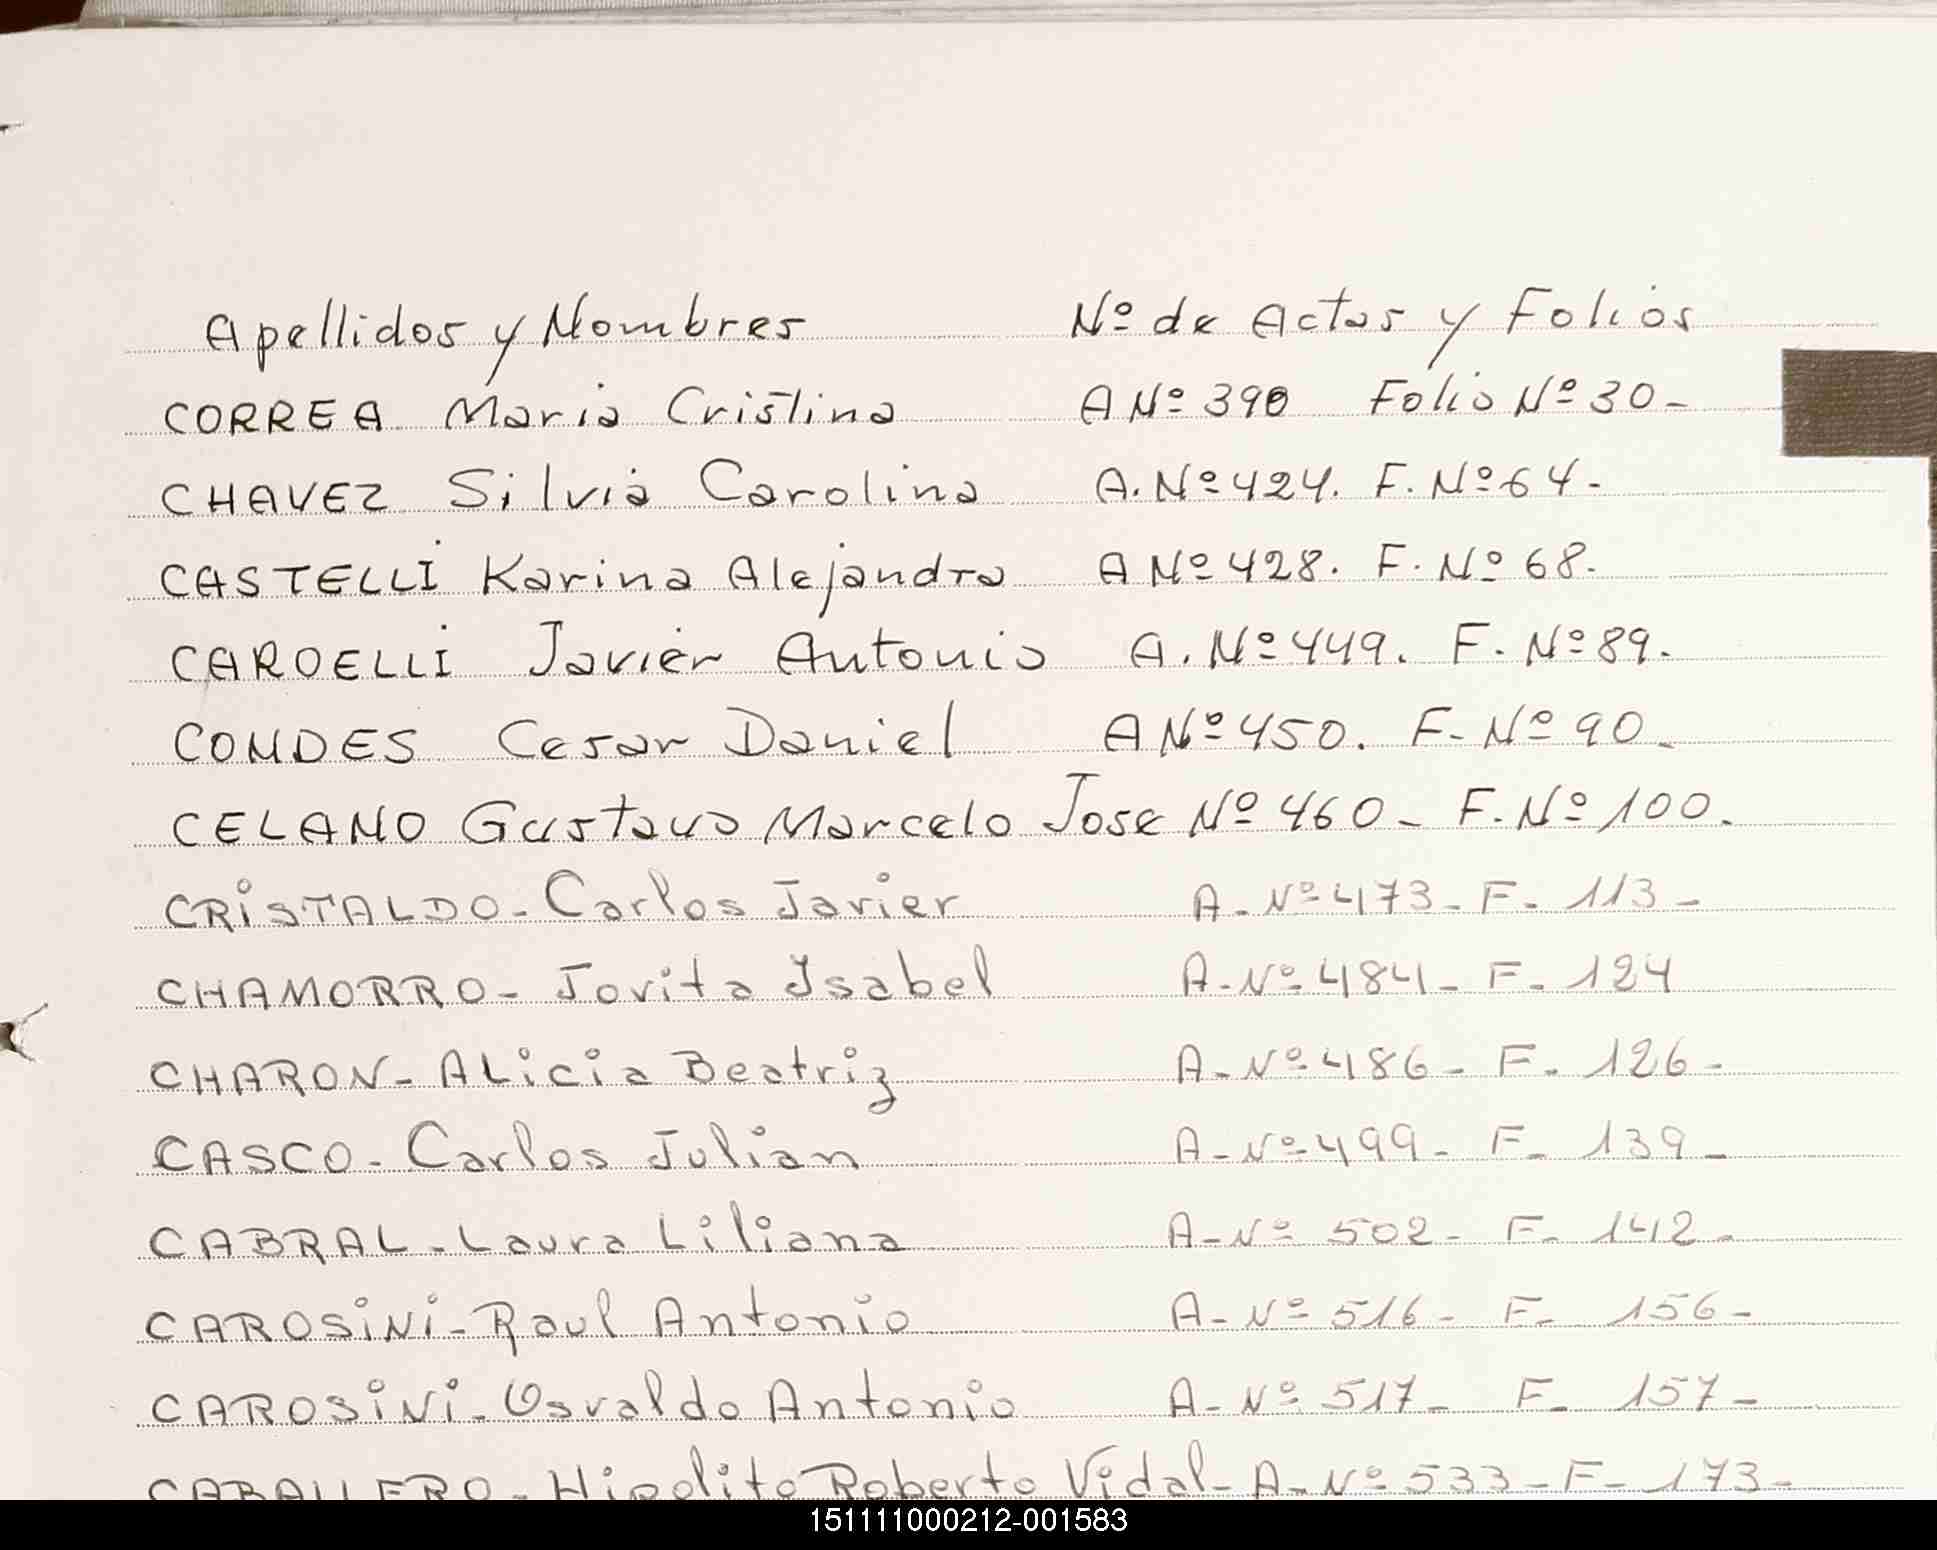 Apellidos y Nombres Nº de Actas y Folios
CORREA Maria Cristina A Nº 390 Folio Nº 30-
CHAVEZ Silvia Carolina A. Nº 424. F. Nº 64-
CASTELLI Karina Alejandra A Nº 428. F. Nº 68.
CAROELLI Javier Antonio A. Nº 449. F. Nº 89.
CONDES Cesar Daniel A Nº 450. F- Nº 90-
CELANO Gustavo Marcelo Jose Nº 460- F. Nº 100.
CRISTALDO- Carlos Javier A- Nº 473- F- 113-
CHAMORRO- Jovita Ysabel A- Nº 484- F- 124
CHARON- Alicia Beatriz A- Nº 486- F- 126-
CASCO- Carlos Julian A- Nº 499- F- 139-
CABRAL- Laura Liliana A- Nº 502- F- 142-
CAROSINI- Raul Antonio A- Nº 516- F- 156-
CAROSINI- Osvaldo Antonio A- Nº 517- F- 157-
CABALLERO- Hipolito Roberto Vidal- A- Nº 533- F- 173-
151111000212-001583